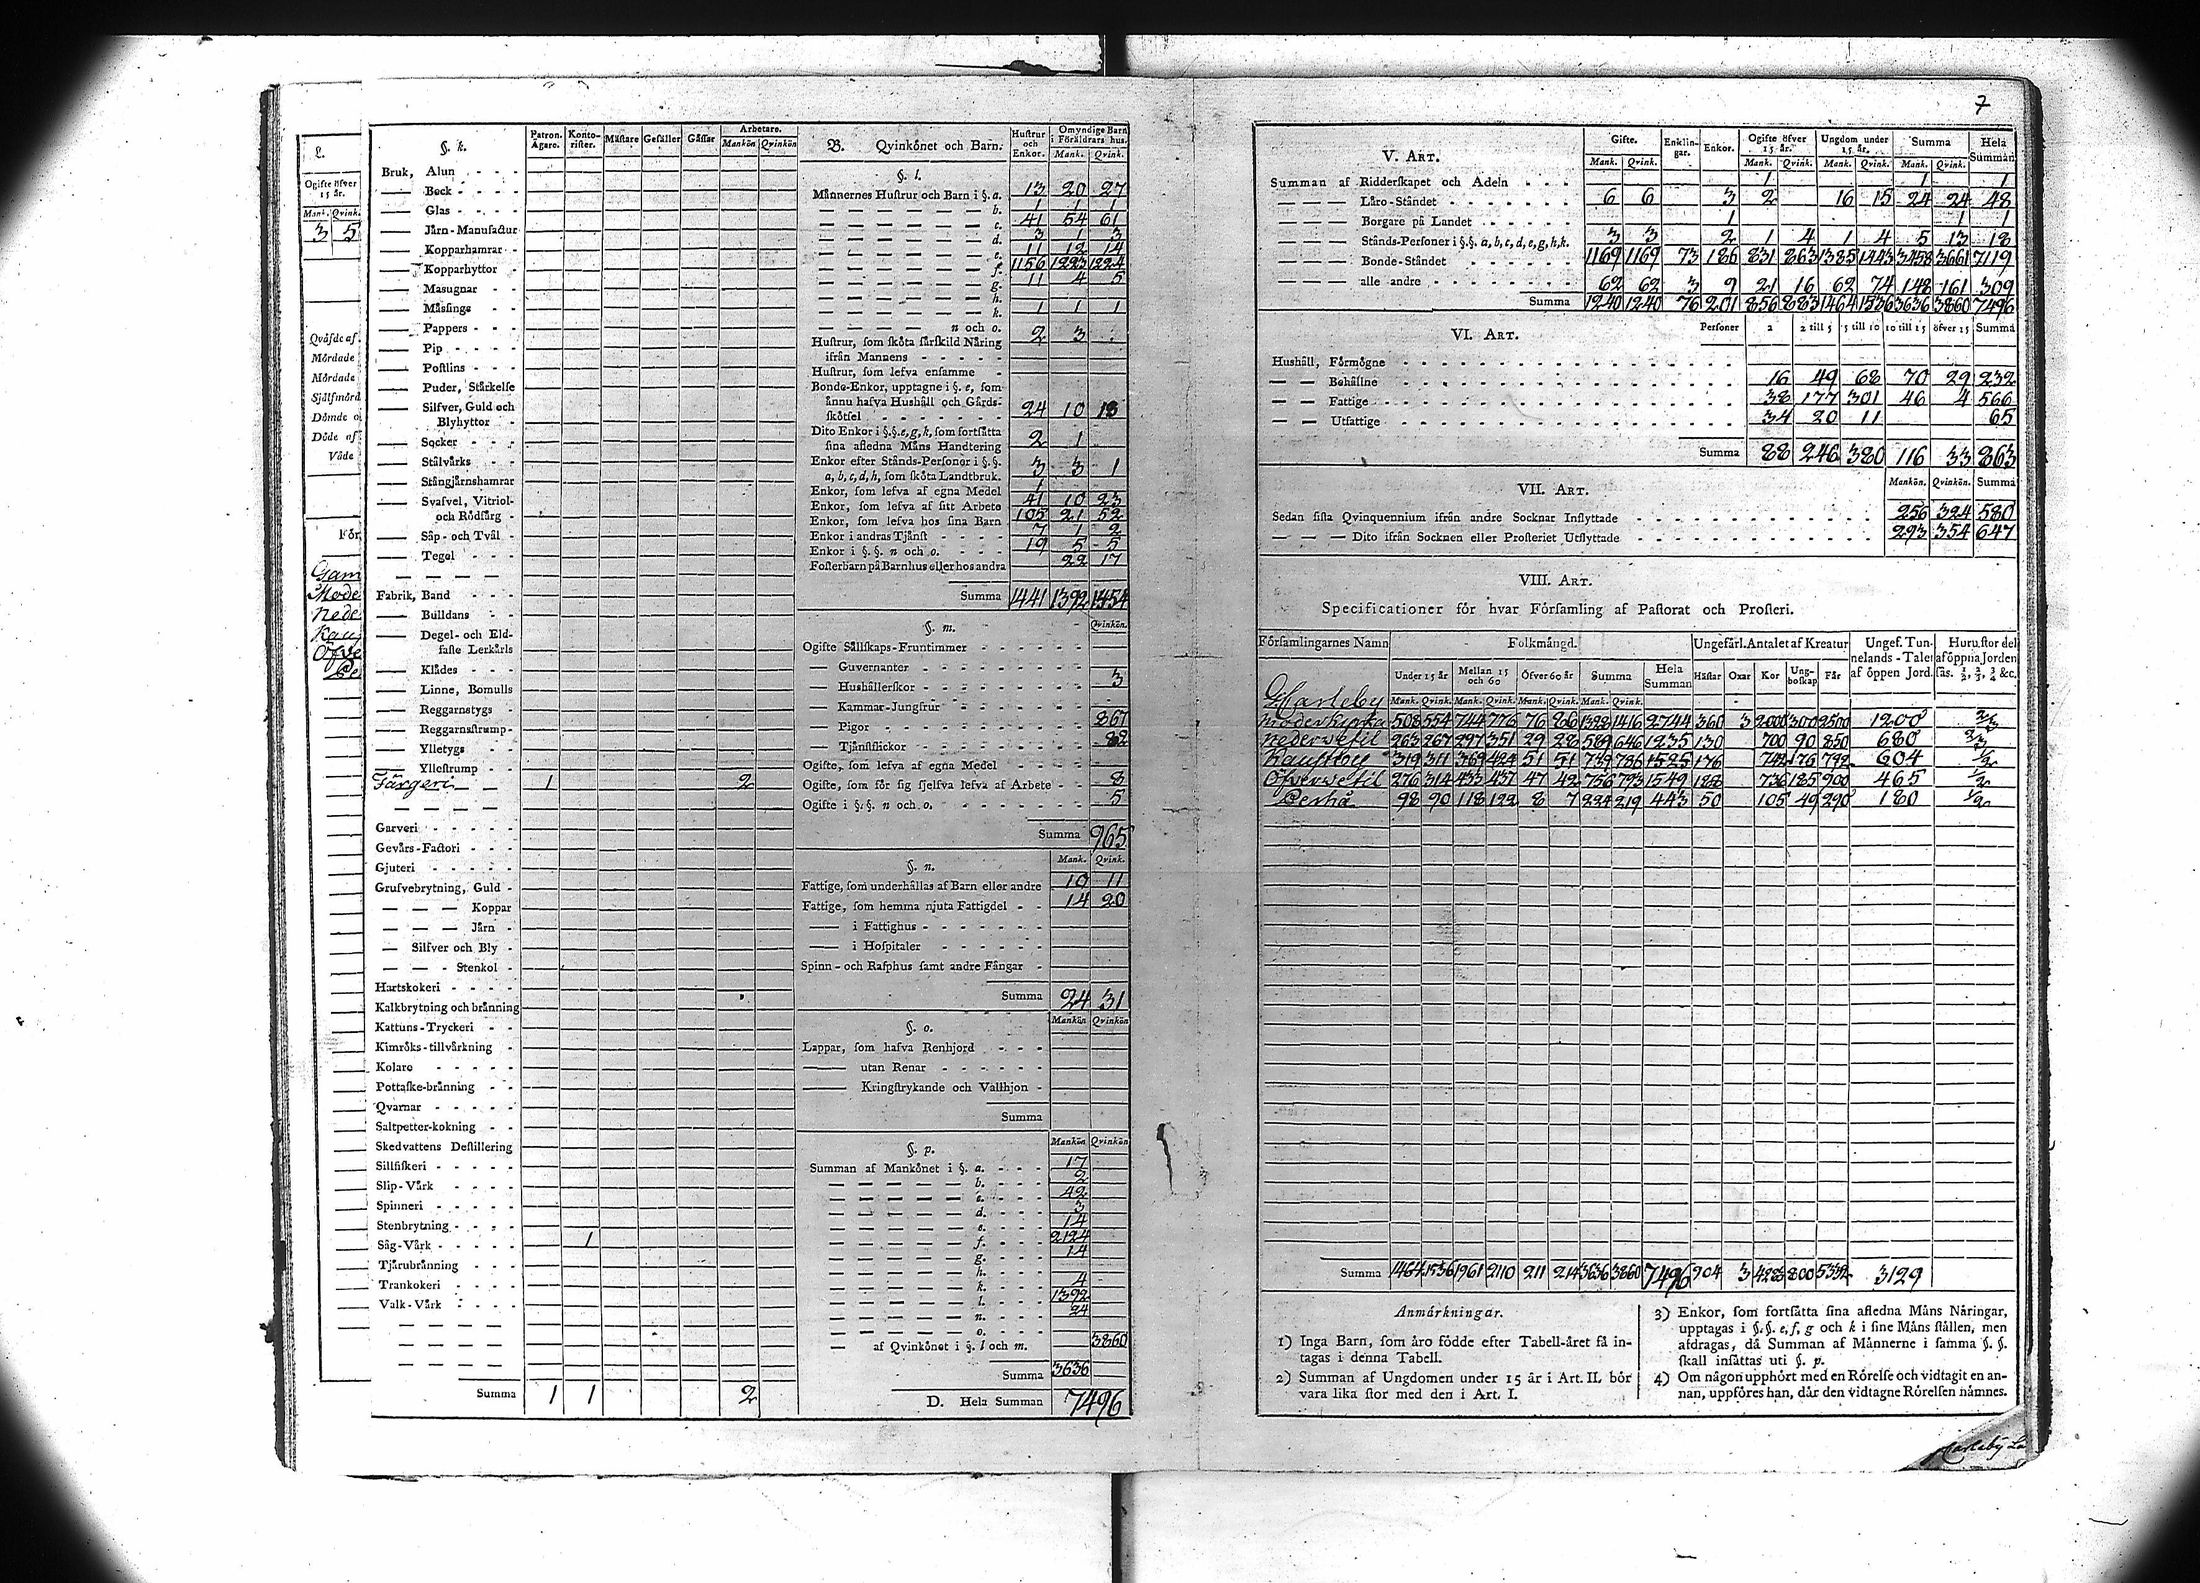 7
L.
Ogifte öfver
15 år.
Mank. Qvink.
3 5
Qväfde af
Mördade
Mördade
Sjelfmörd
Dömde o
Döde af
Våde
För
Gam
Mode
Nede
Kau
Öfve
Pe
§. k. Patron. Ägare. Konto-rister. Mästare Gesäller Gåssar Arbetare. Mankön Qvinkön
Bruk, Alun
Beck
Glas
Jårn-Manufactur
Kopparhamrar
Kopparhyttor
Masugnar
Måssings
Pappers
Pip
Postlins
Puder, Stårkelse
Silfver, Guld och
Blyhyttor
Socker
Stålvårks
Stångjårnshamrar
Svafvel, Vitriol-
och Rödfårg
Såp- och Tvål
Tegel
Fabrik, Band
Bulldans
Degel- och Eld-
faste Lerkårls
Klådes
Linne, Bomulls
Reggarnstygs
Reggarnsstrump
Ylletygs
Yllestrump
Färgeri 1 2
Garveri
Gevårs-Factori
Gjuteri
Grufvebrytning, Guld
Koppar
Jårn
Silfver och Bly
Stenkol
Hartskokeri
Kalkbrytning och brånning
Kattuns-Tryckeri
Kimröks-tillvårkning
Kolare
Pottaske-brånning
Qvarnar
Saltpetter-kokning
Skedvattens Destillering
Sillfiskeri
Slip-Vårk
Spinneri
Stenbrytning
Såg-Vårk 1
Tjårubrånning
Trankokeri
Valk-Vårk
Summa 1 1 2
B. Qvinkönet och Barn. Hustrur och Enkor. Omyndige Barn i Föräldrars hus. Mank. Qvink.
§. l.
Månnernes Hustrur och Barn i §. a. 13 20 27
b. 1 1 1
c. 41 54 61
d. 3 1 3
e. 11 12 14
f. 1156 1223 1224
g. 11 4 5
h.
k. 1 1 1
n och o. 2 3
Hustrur, som sköta sårskild Nåring
ifrån Mannens
Hustrur, som lefva ensamme
Bonde-Enkor, upptagne i §. e, som
ånnu hafva Hushåll och Gårds-
skötsel 24 10 13
Dito Enkor i §.§. e, g, k, som fortsåtta
sina afledna Måns Handtering 2 1
Enkor efter Stånds-Personer i §.§.
a, b, c, d, h, som sköta Landtbruk. 3 3 1
Enkor, som lefva af egna Medel 1
Enkor, som lefva af sitt Arbete 41 10 23
Enkor, som lefva hos sina Barn 105 21 52
Enkor i andras Tjånst 7 1 2
Enkor i §. §. n och o. 19 5 5
Fosterbarn på Barnhus eller hos andra 22 17
Summa 1441 1392 1454
§. m. Qvinkön.
Ogifte Sållskaps-Fruntimmer
Guvernanter
Hushållerskor 3
Kammar-Jungfrur
Pigor 867
Tjånstflickor 82
Ogifte, som lefva af egna Medel
Ogifte, som för sig sjelfva lefva af Arbete 8
Ogifte i §. §. n och o. 5
Summa 965
§. n. Mank. Qvink.
Fattige, som underhållas af Barn eller andre 10 11
Fattige, som hemma njuta Fattigdel 14 20
i Fattighus
i Hospitaler
Spinn- och Rasphus samt andre Fångar
Summa 24 31
§. o. Mankön Qvinkön
Lappar, som hafva Renhjord
utan Renar
Kringstrykande och Vallhjon
Summa
§. p. Mankön Qvinkön
Summan af Mankönet i §. a. 17
b. 2
c. 42
d. 3
e. 14
f. 2124
g. 14
h.
k. 4
l. 1392
n. 24
o.
af Qvinkönet i §. l och m. 3860
Summa 3636
D. Hela Summan 7496
V. ART. Gifte. Mank. Qvink. Enklin-gar. Enkor. Ogifte öfver 15 år. Mank. Qvink. Ungdom under 15 år. Mank. Qvink. Summa Mank. Qvink. Hela Summan
Summan af Ridderskapet och Adeln 1 1 1
Låro-Ståndet 6 6 3 2 16 15 24 24 48
Borgare på Landet 1 1 1
Stånds-Personer i §.§. a, b, c, d, e, g, h, k. 3 3 2 1 4 1 4 5 13 18
Bonde-Ståndet 1169 1169 73 186 831 863 1385 1443 3458 3661 7119
alle andre 62 62 3 9 21 16 62 74 148 161 309
Summa 1240 1240 76 201 856 883 1464 1536 3636 3860 7496
VI. ART. Personer 2 2 till 5 5 till 10 10 till 15 öfver 15 Summa
Hushåll, Förmögne
Behållne 16 49 68 70 29 232
Fattige 38 177 301 46 4 566
Utfattige 34 20 11 65
Summa 88 246 380 116 33 863
VII. ART. Mankön. Qvinkön. Summa
Sedan sista Qvinquennium ifrån andre Socknar Inflyttade 256 324 580
Dito ifrån Socknen eller Prosteriet Utflyttade 293 354 647
VIII. ART.
Specificationer för hvar Församling af Pastorat och Prosteri.
Församlingarnes Namn Folkmångd. Ungefårl. Antalet af Kreatur Ungef. Tun-nelands-Talet af öppen Jord. Huru stor del af öppna Jorden sås. ½, ⅔, ¾ &c.
Under 15 år Mellan 15 och 60 Öfver 60 år Summa Hela Summan Håstar Oxar Kor Ung-boskap Får
Mank. Qvink. Mank. Qvink. Mank. Qvink. Mank. Qvink.
G Carleby
Moderkyrka 508 554 744 776 76 86 1328 1416 2744 360 3 2000 300 2500 1200 2/3
Nederwetil 263 267 297 351 29 28 589 646 1235 130 700 90 850 680 2/3
Kaustby 319 311 369 424 51 51 739 786 1525 176 742 176 792 604 1/2
Öfverwetil 276 314 433 437 47 42 756 793 1549 188 736 185 900 465 1/2
Perho 98 90 118 122 8 7 224 219 443 50 105 49 290 180 1/2
Summa 1464 1536 1961 2110 211 214 3636 3860 7496 904 3 4283 800 5332 3129
Anmårkningar.
1) Inga Barn, som åro födde efter Tabell-året få in-
tagas i denna Tabell.
2) Summan af Ungdomen under 15 år i Art. II. bör
vara lika stor med den i Art. I.
3) Enkor, som fortsåtta sina afledna Måns Nåringar,
upptagas i §. §. e, f, g och k i sine Måns stållen, men
afdragas, då Summan af Månnerne i samma §. §.
skall insåttas uti §. p.
4) Om någon upphört med en Rörelse och vidtagit en an-
nan, uppföres han, dår den vidtagne Rörelsen nåmnes.
Carleby